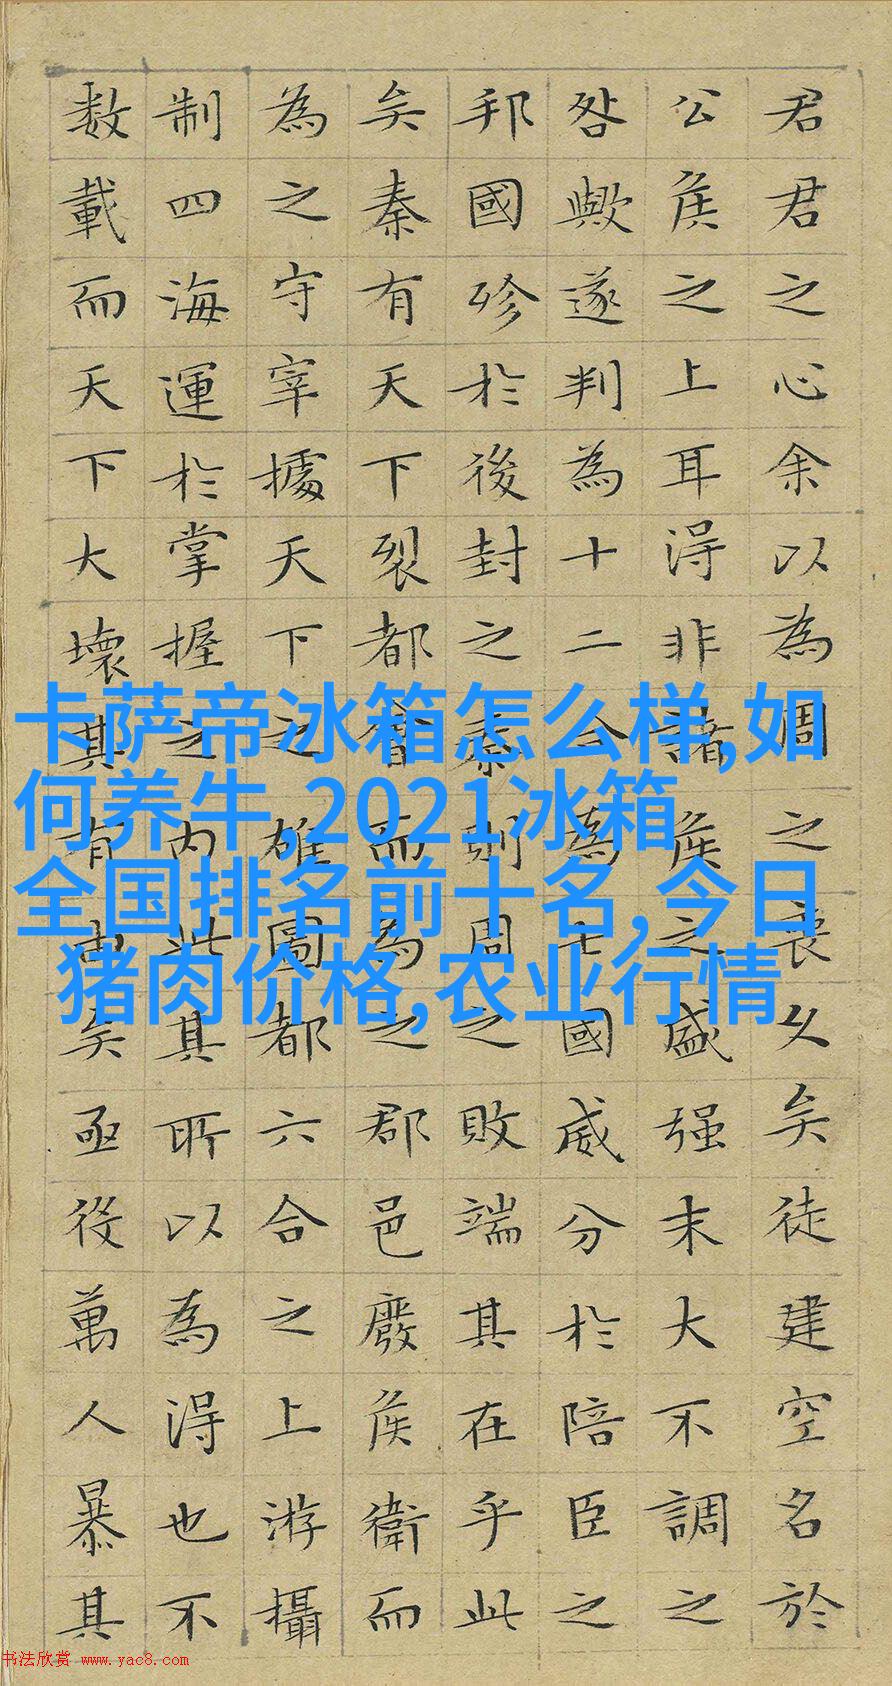 君君之心余以為周之喪久矣徒建空名於
公侯之上耳得非諸侯之盛强末大不調之
咎歟遂判為十二合為七國威分於陪臣之
邦國殄於後封之秦則周之敗端其在乎此
矣秦有天下裂都會而為之郡邑廢侯衛而
為之守宰據天下之雄圖都六合之上游攝
制四海運於掌握之内此其所以為得也不
数載而天下大壞其有由矣亟役萬人暴其
卡萨帝冰箱怎么样,如
何养牛,2021冰箱
全国排名前十名,今日
猪肉价格,农业行情
书法欣赏 www.yac8.com